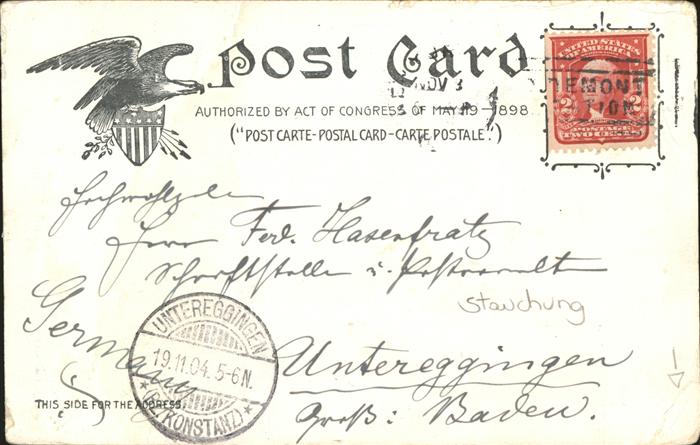 Post Card
AUTHORIZED BY ACT OF CONGRESS OF MAY 19-1898.
("POST CARTE-POSTAL CARD-CARTE POSTALE.")
NOV 3
UNITED STATES
OF AMERICA
2 2
POSTAGE
TWO CENTS
Hochwohlgeb.
Herrn Ferd. Hasenfratz
u. Postanwalt
Stauchung
Germany
Untereggingen
Groß: Baden.
UNTEREGGINGEN
19.11.04. 5-6N.
(KONSTANZ)
THIS SIDE FOR THE ADDRESS.